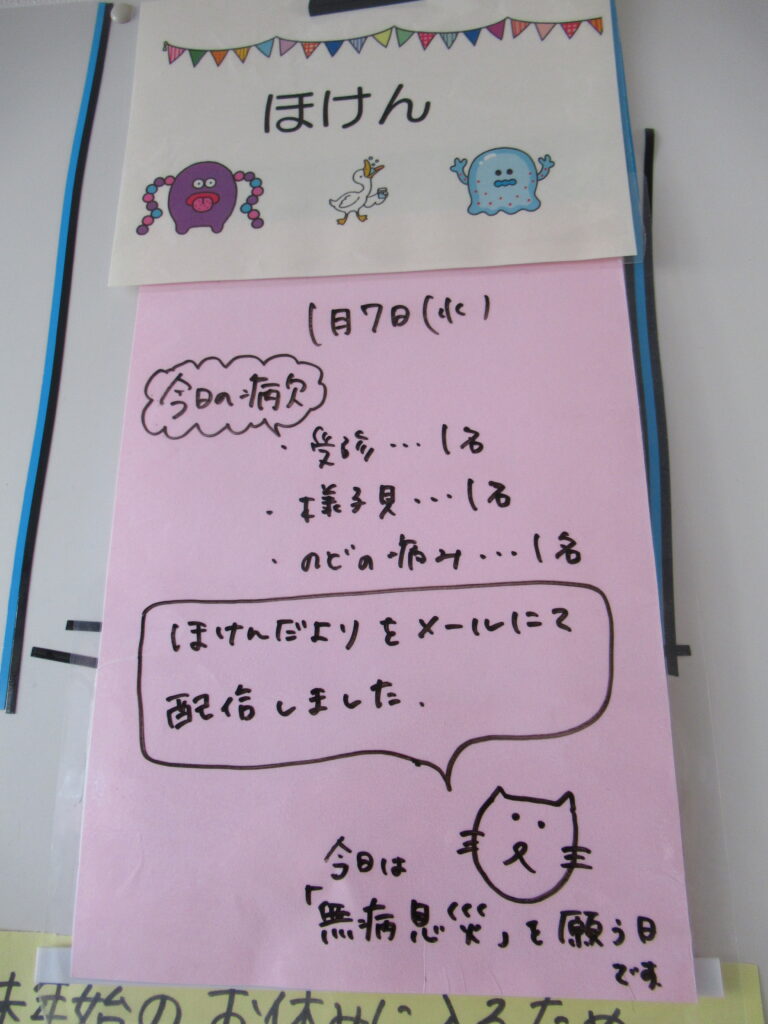 ほけん
1月7日(水)
今日の病欠
・受診…1名
・様子見…1名
・のどの痛み…1名
ほけんだよりをメールにて
配信しました.
今日は
「無病息災」を願う日
です
年始のお休みに入るため